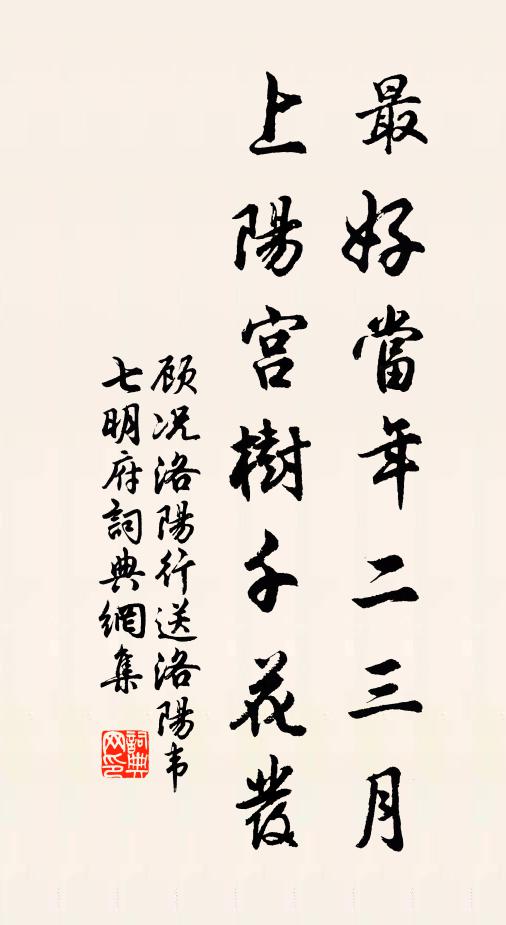 最好當年二三月
上陽宮樹千花發
顾况洛陽行送洛陽韦
七明府詞典網集
詞典网印